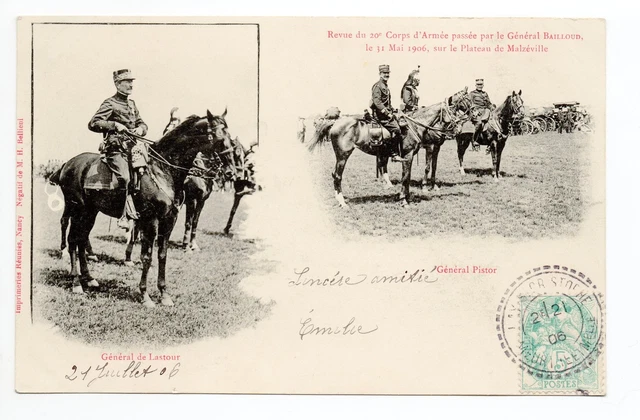 Revue du 20e Corps d'Armée passée par le Général BAILLOUD,
le 31 Mai 1906, sur le Plateau de Malzéville
Imprimeries Réunies, Nancy Négatif de M. H. Bellieni
Général Pistor
Sincére amitié
Émilie
Général de Lastour
21 Juillet 06
21
06
POSTES